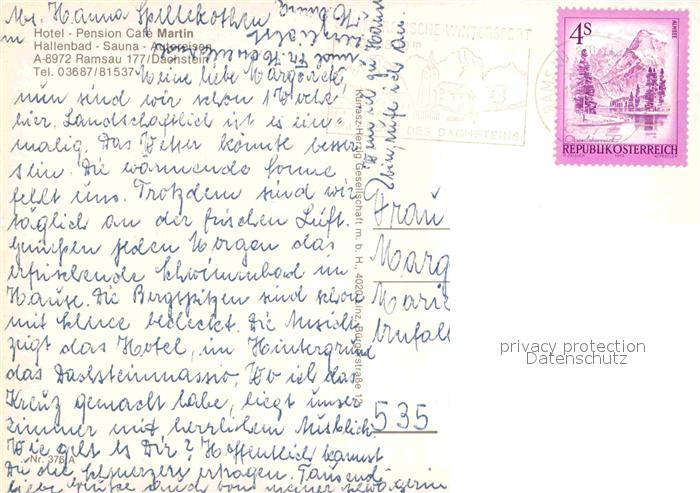 Hotel - Pension Café Martin
Hallenbad - Sauna - Autoreisen
A-8972 Ramsau 177/Dachstein
Tel. 03687/81537
Meine liebe
nun sind wir schon 1 Woche
hier. Landschaftlich ist es ein-
malig. Das Wetter könnte besser
sein. Die wärmende Sonne
fehlt uns. Trotzdem sind wir
täglich an der frischen Luft.
jeden Morgen das
erfrischende Schwimmbad im
Hause. Die Bergspitzen sind schon
mit Schnee bedeckt. Die Ansicht
zeigt das Hotel, im Hintergrund
das Dachsteinmassiv. Wo ich das
Kreuz gemacht habe, liegt unser
Zimmer mit herrlichem Ausblick.
Wie geht es Dir? Hoffentlich kannst
Du die Schmerzen ertragen. Tausend
liebe Grüße auch von meiner Schwägerin
Nr. 376 A
Wenn ich zu Hause
bin, rufe ich an
Kurrasz-Herzig Gesellschaft m. b. H., 4020 Linz, Bürgerstraße
WINTERSPORT
DES DACHSTEINS
4 S
ALMSEE
REPUBLIK ÖSTERREICH
Frau
Marg
Marie
Unfall
535
privacy protection
Datenschutz